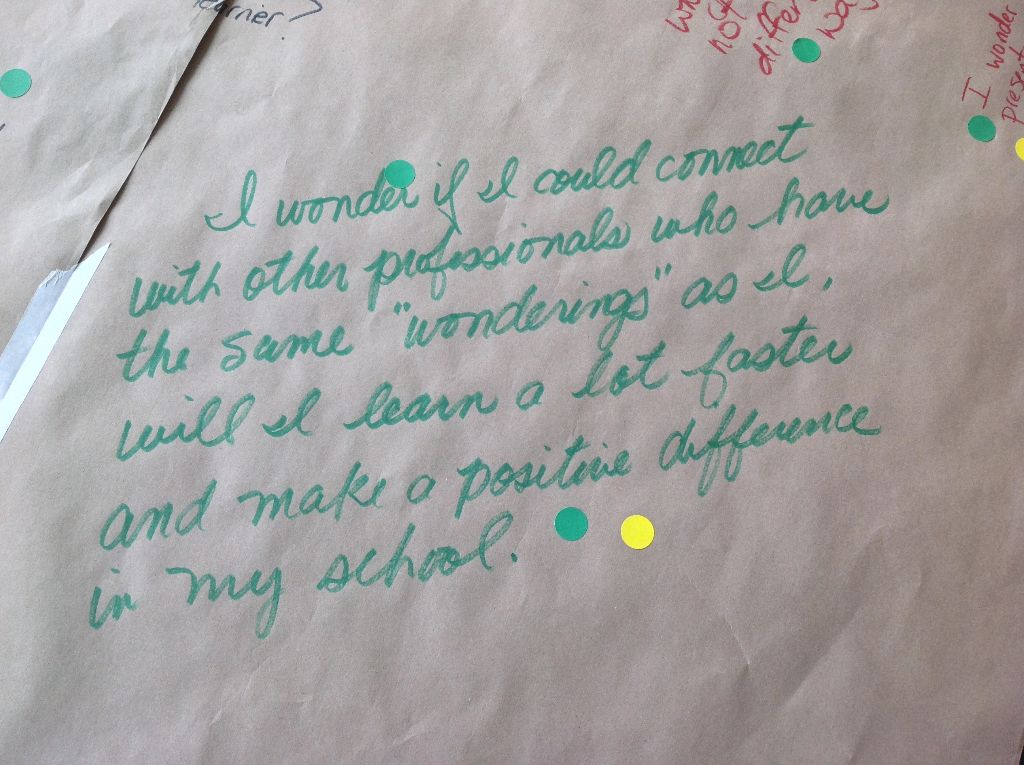 I wonder if I could connect
with other professionals who have
the same "wonderings" as I,
will I learn a lot faster
and make a positive difference
in my school.
not
differ
way
I wonder
present